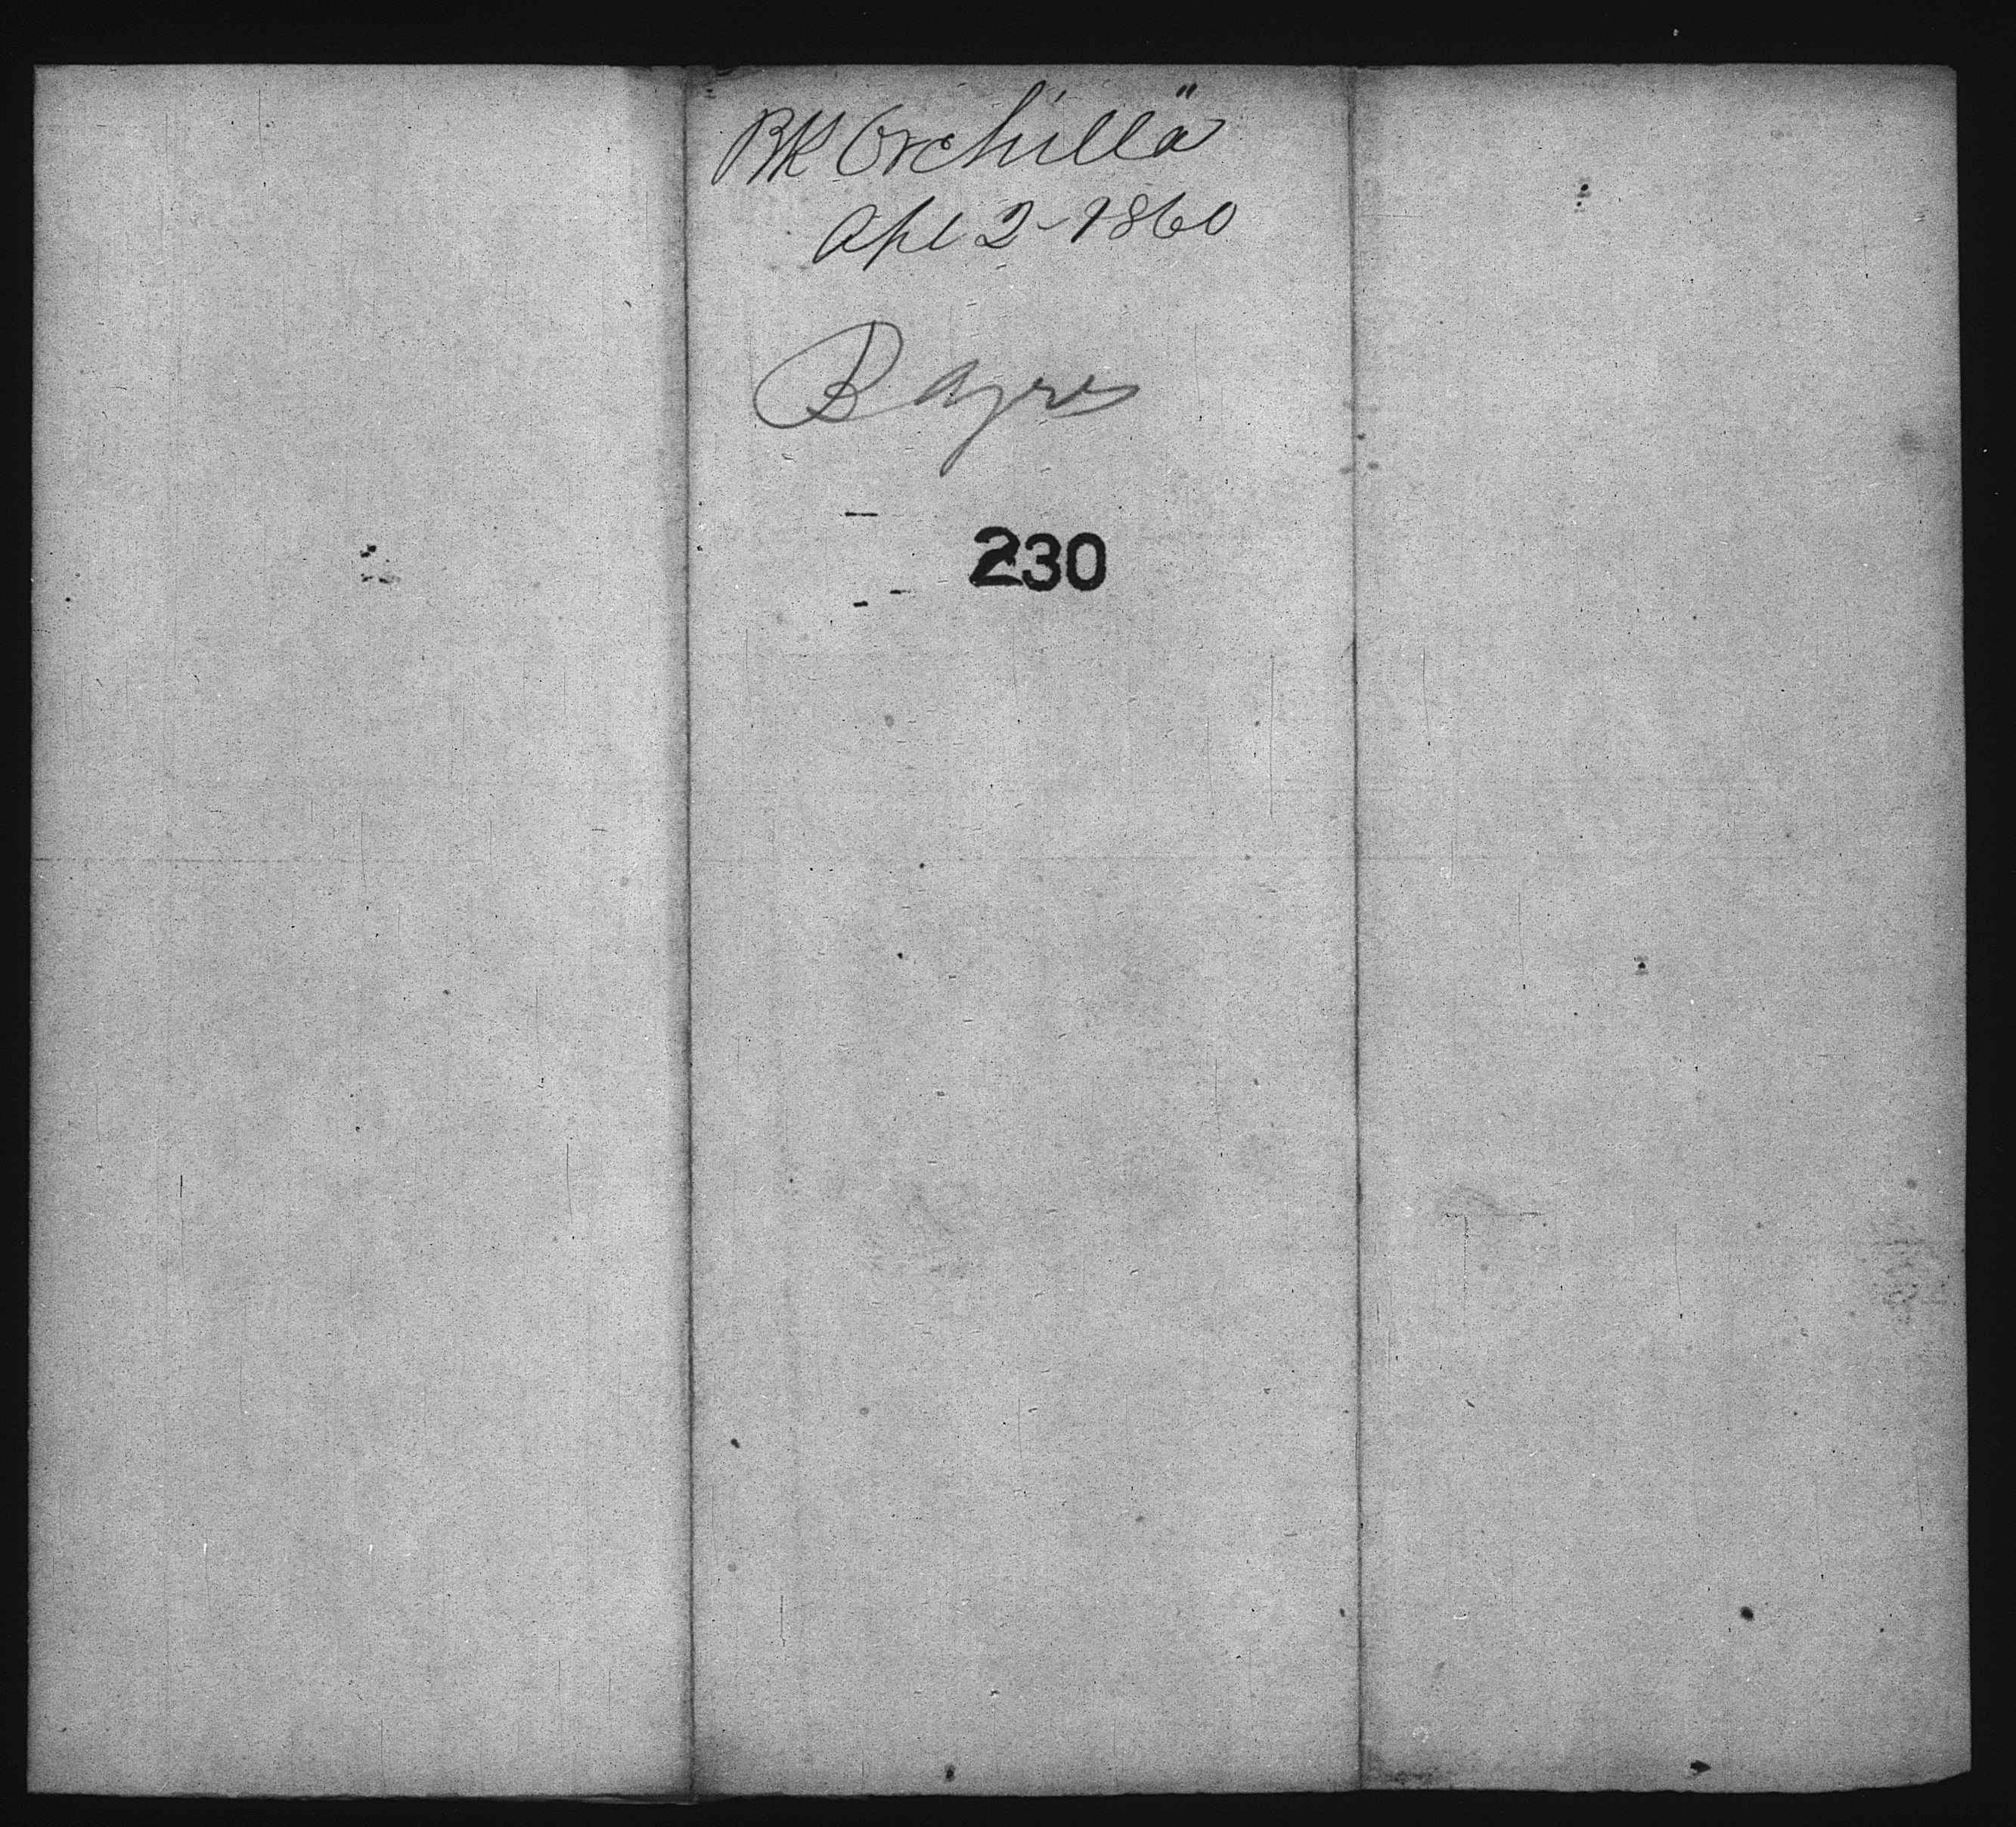 Bk Orchilla"
Apl 2-1860
B Ayres
230